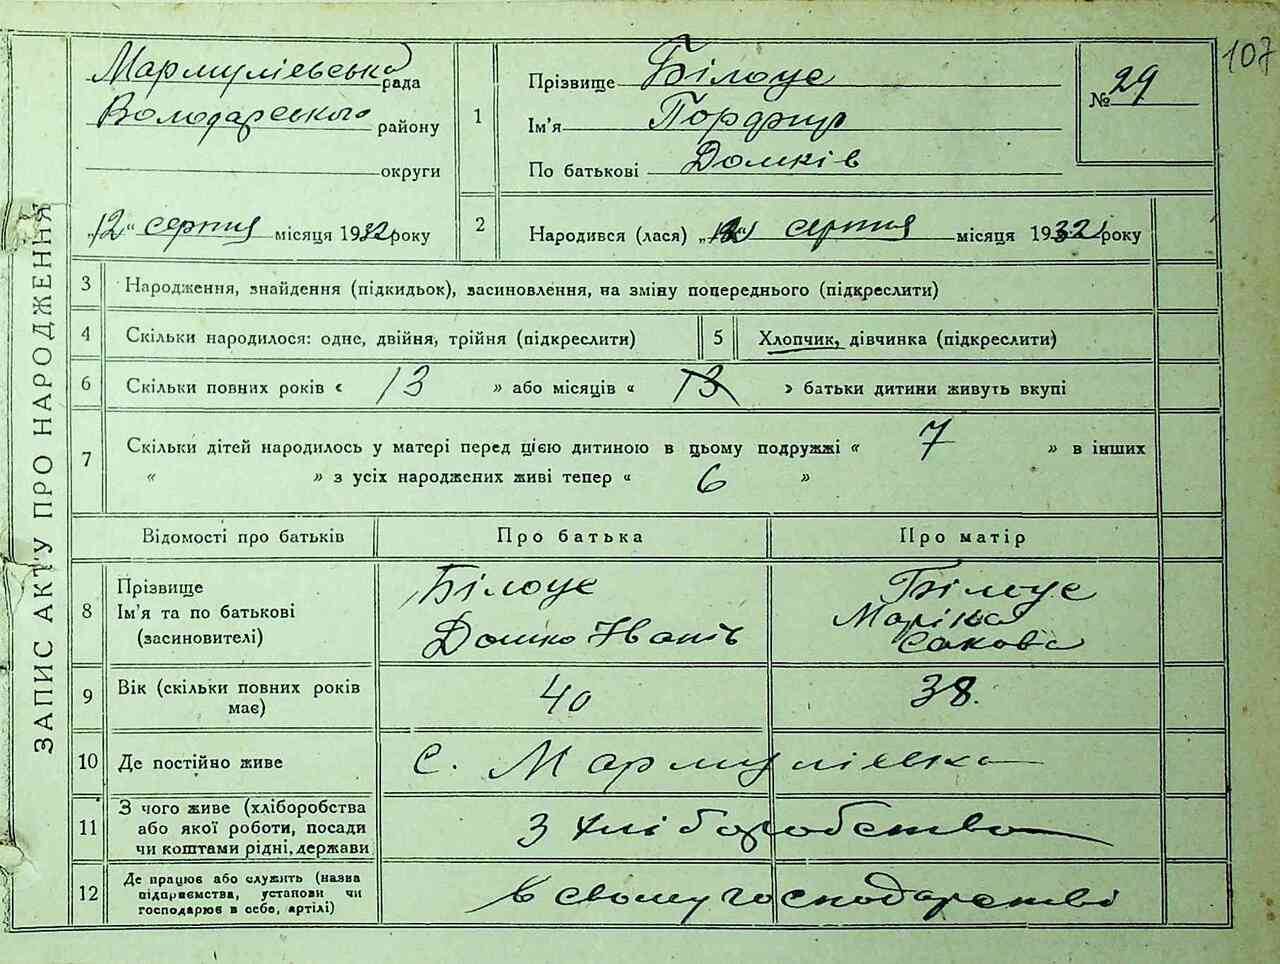 107
ЗАПИС АКТУ ПРО НАРОДЖЕННЯ
Мармуліевська рада
Володарського району
округи
„12“ серпня місяця 1932 року
1
Прізвище Білоус
Ім'я Порфир
По батькові Домків
№ 29
2
Народився (лася) „ “ серпня місяця 1932 року
3 Народження, знайдення (підкидьок), засиновлення, на зміну попереднього (підкреслити)
4 Скільки народилося: одне, двійня, трійня (підкреслити)
5 Хлопчик, дівчинка (підкреслити)
6 Скільки повних років « 13 » або місяців « 13 » батьки дитини живуть вкупі
7 Скільки дітей народилось у матері перед цією дитиною в цьому подружжі « 7 » в інших
« » з усіх народжених живі тепер « 6 »
Відомості про батьків Про батька Про матір
8
Прізвище
Ім'я та по батькові
(засиновителі)
Білоус
Домко Іванів
Білоус
Маріна
Сакова
9 Вік (скільки повних років
має)
40
38.
10 Де постійно живе с. Мармуліевка
11
З чого живе (хліборобства
або якої роботи, посади
чи коштами рідні, держави
З хліборобства
12
Де працює або служить (назва
підприємства, установи чи
господарює в себе, артілі)
в своему господарстві